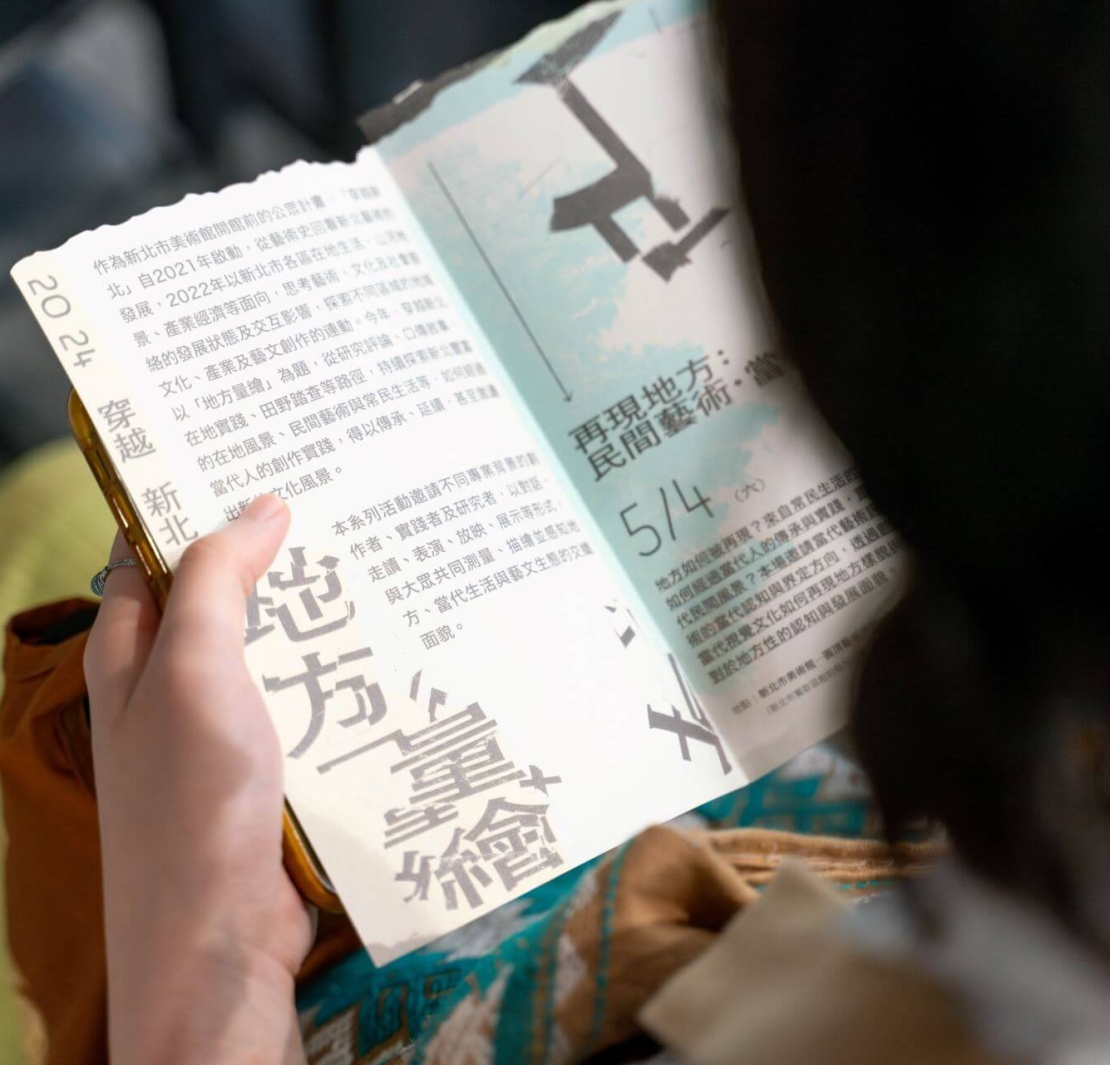 2024 穿越 新北
作為新北市美術館開館前的公眾計畫,「穿越新
北」自2021年啟動,從藝術史回看新北藝術的
發展,2022年以新北市各區在地生活、山河地
景、產業經濟等面向,思考藝術、文化及社會脈
絡的發展狀態及交互影響,探索不同區域的地理
文化、產業及藝文創作的連動。今年,穿越新北
以「地方量繪」為題,從研究評論、口傳故事、
在地實踐、田野踏查等路徑,持續探索新北豐富
的在地風景、民間藝術與常民生活等,如何經過
當代人的創作實踐,得以傳承、延續,甚至激盪
出新 文化風景。
本系列活動邀請不同專業背景的創
作者、實踐者及研究者,以對話、
走讀、表演、放映、展示等形式,
與大眾共同測量、描繪並感知地
方、當代生活與藝文生態的交織
面貌。
地方量繪
再現地方:
民間藝術.當
5/4 (六)
地方如何被再現?來自常民生活
如何經過當代人的傳承與實踐,
代民間風景?本場邀請當代藝術
術的當代認知與界定方向,透過
當代視覺文化如何再現地方樣貌
對於地方性的認知與發展面貌。
地點:新北市美術館